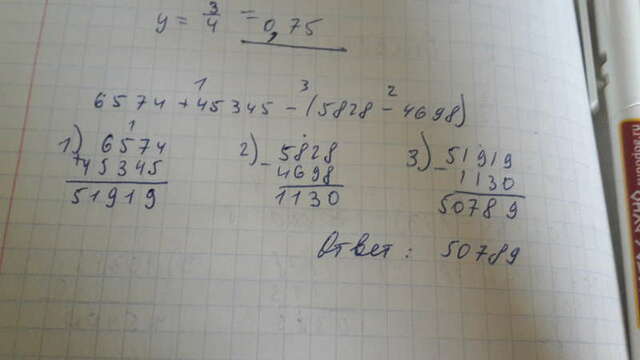 y = 3/4 = 0,75
6574 + 45345 - (5828 - 4698)
1 3 2
1) 6574 2) 5828 3) 51919
+ 45345 - 4698 - 1130
51919 1130 50789
Ответ: 50789